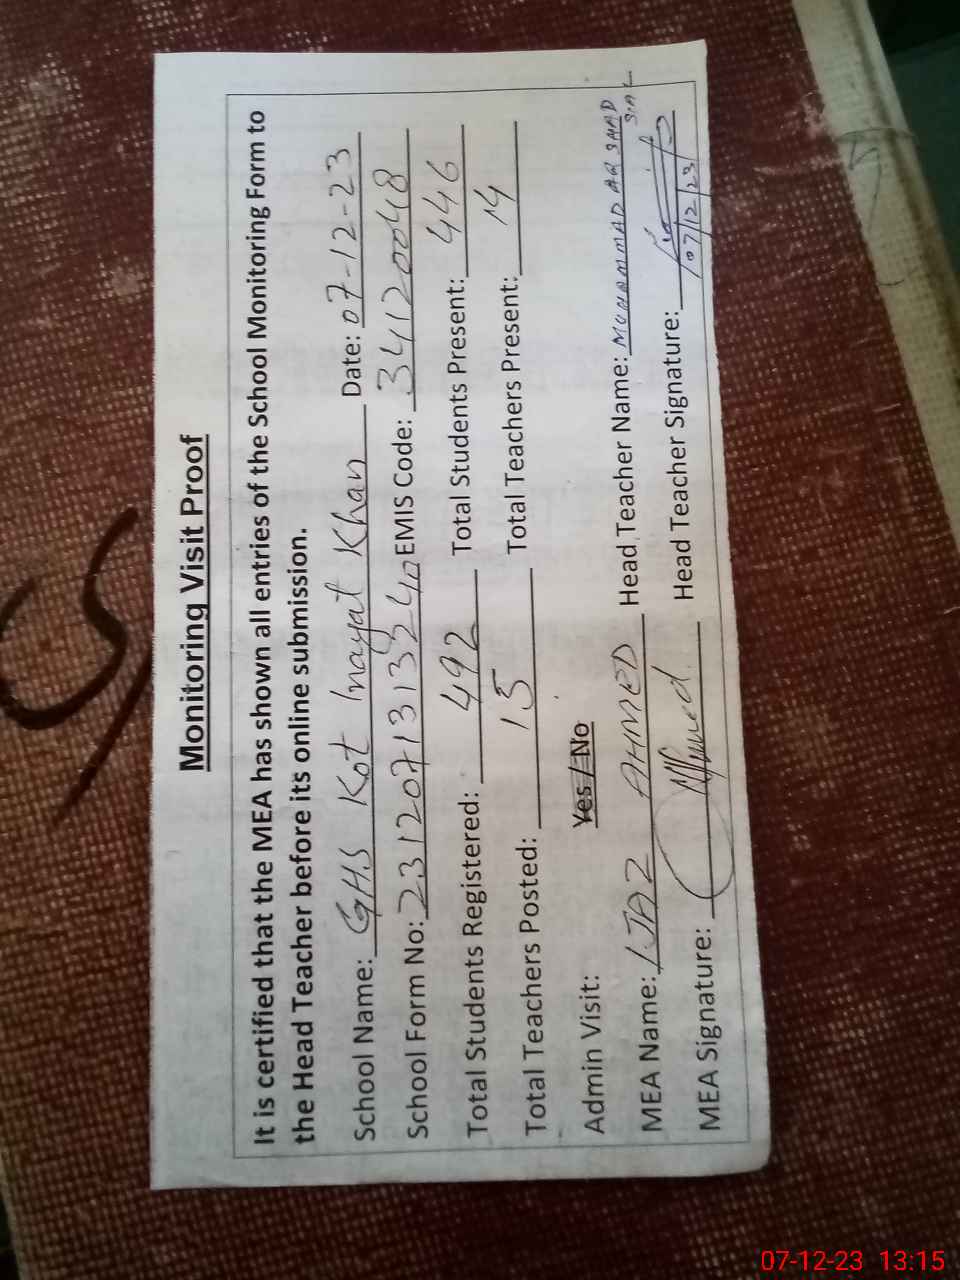 Monitoring Visit Proof
It is certified that the MEA has shown all entries of the School Monitoring Form to
the Head Teacher before its online submission.
School Name: GHS Kot Inayat Khan Date: 07-12-23
School Form No: 231207131324 EMIS Code: 34120048
Total Students Registered: 492 Total Students Present: 446
Total Teachers Posted: 15 Total Teachers Present: 14
Admin Visit: Yes / No
MEA Name: IJAZ AHMED Head Teacher Name: MUHAMMAD ARSHAD
MEA Signature: Head Teacher Signature:
07/12/23
07-12-23 13:15